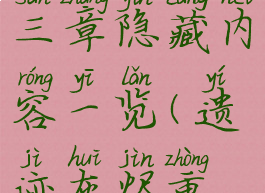 sān zhāng yǐn cáng nèi
三章隐藏内
róng yī lǎn yí
容一览(遗
jì huī jìn zhòng
迹灰烬重